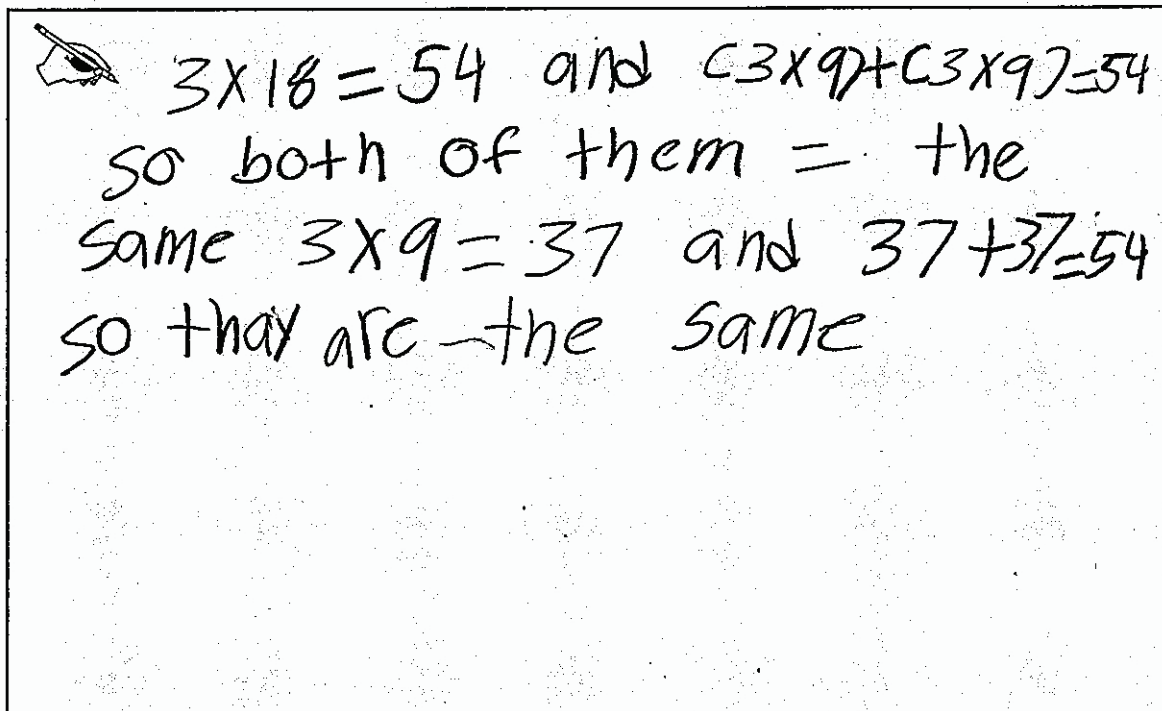 3×18=54 and (3×9)+(3×9)=54
so both of them = the
same 3×9=37 and 37+37=54
so thay are the same